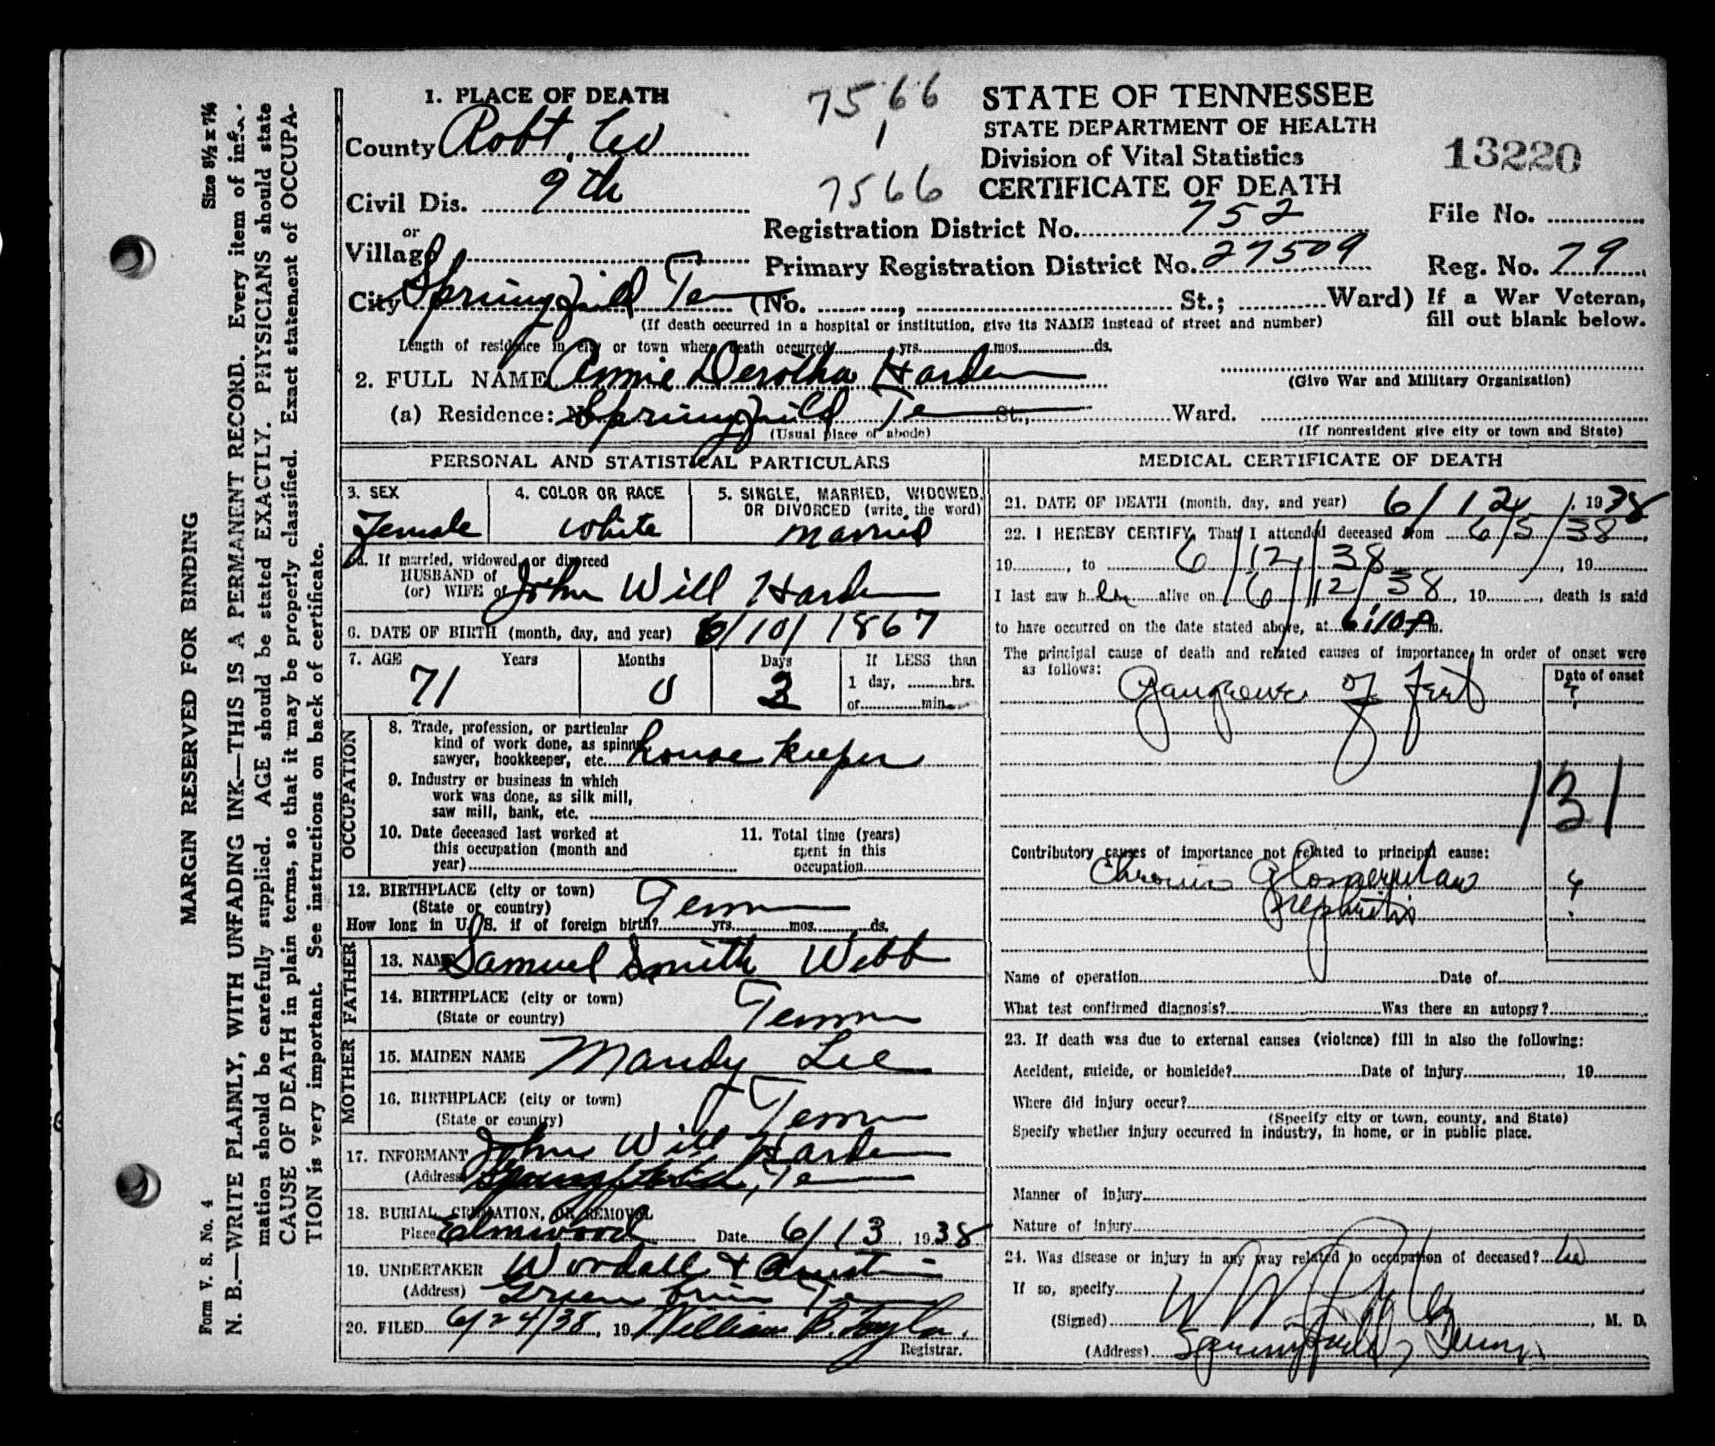 Size 8½ x 7¼
MARGIN RESERVED FOR BINDING
N. B.—WRITE PLAINLY, WITH UNFADING INK—THIS IS A PERMANENT RECORD. Every item of infor-
mation should be carefully supplied. AGE should be stated EXACTLY. PHYSICIANS should state
CAUSE OF DEATH in plain terms, so that it may be properly classified. Exact statement of OCCUPA-
TION is very important. See instructions on back of certificate.
Form V. S. No. 4
1. PLACE OF DEATH
County Robt. Co
Civil Dis. 9th
or
Village
City Springfield Ten (No. St.; Ward)
7566
1
7566
STATE OF TENNESSEE
STATE DEPARTMENT OF HEALTH
Division of Vital Statistics
CERTIFICATE OF DEATH
13220
Registration District No. 752
File No.
Primary Registration District No. 27509
Reg. No. 79
If a War Veteran,
fill out blank below.
(If death occurred in a hospital or institution, give its NAME instead of street and number)
Length of residence in city or town where death occurred yrs. mos. ds.
2. FULL NAME Annie Derotha Harden
(Give War and Military Organization)
(a) Residence: No. Springfield Te St., Ward.
(Usual place of abode)
(If nonresident give city or town and State)
PERSONAL AND STATISTICAL PARTICULARS
3. SEX
Female
4. COLOR OR RACE
White
5. SINGLE, MARRIED, WIDOWED,
OR DIVORCED (write the word)
Married
5a. If married, widowed, or divorced
HUSBAND of
(or) WIFE of John Will Harden
6. DATE OF BIRTH (month, day, and year) 6/10/1867
7. AGE Years Months Days If LESS than
71 0 2
1 day, hrs.
or min.
OCCUPATION
8. Trade, profession, or particular
kind of work done, as spinner,
sawyer, bookkeeper, etc. house keeper
9. Industry or business in which
work was done, as silk mill,
saw mill, bank, etc.
10. Date deceased last worked at
this occupation (month and
year)
11. Total time (years)
spent in this
occupation
12. BIRTHPLACE (city or town)
(State or country) Tenn
How long in U. S. if of foreign birth? yrs. mos. ds.
FATHER
13. NAME Samuel Smith Webb
14. BIRTHPLACE (city or town)
(State or country) Tenn
MOTHER
15. MAIDEN NAME Mandy Lee
16. BIRTHPLACE (city or town)
(State or country) Tenn
17. INFORMANT John Will Harden
(Address) Springfield, Te
18. BURIAL, CREMATION, OR REMOVAL
Place Elmwood Date 6/13, 1938
19. UNDERTAKER Woodall & Austin
(Address) Green brier Te
20. FILED 6/24/38, 19 William B. Taylor.
Registrar.
MEDICAL CERTIFICATE OF DEATH
21. DATE OF DEATH (month, day, and year) 6/12/, 1938
22. I HEREBY CERTIFY, That I attended deceased from 6/5/38,
19, to 6/12/38, 19
I last saw h er alive on 6/12/38, 19, death is said
to have occurred on the date stated above, at 6:10 P m.
The principal cause of death and related causes of importance in order of onset were
as follows:
Date of onset
Gangrene of feet ?
131
Contributory causes of importance not related to principal cause:
Chronic Glomerular ?
nephritis
Name of operation Date of
What test confirmed diagnosis? Was there an autopsy?
23. If death was due to external causes (violence) fill in also the following:
Accident, suicide, or homicide? Date of injury, 19
Where did injury occur?
(Specify city or town, county, and State)
Specify whether injury occurred in industry, in home, or in public place.
Manner of injury
Nature of injury
24. Was disease or injury in any way related to occupation of deceased? no
If so, specify
(Signed), M. D.
(Address) Springfield, Tenn.